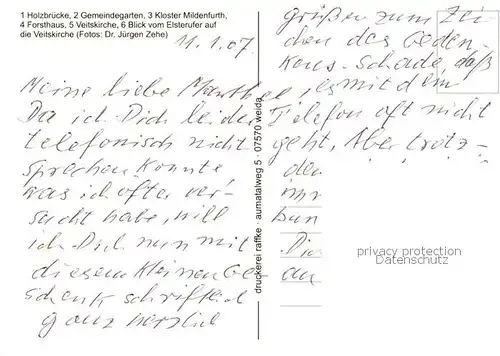 1 Holzbrücke, 2 Gemeindegarten, 3 Kloster Mildenfurth,
4 Forsthaus, 5 Veitskirche, 6 Blick vom Elsterufer auf
die Veitskirche (Fotos: Dr. Jürgen Zehe)
11.1.07.
Meine liebe
Da ich Dich leider
telefonisch nicht
sprechen konnte
was ich öfter ver-
sucht habe, will
ich Dich nun mit
diesem kleinen Ge-
schenk schriftlich
ganz herzlich
druckerei raffke · aumatalweg 5 · 07570 weida
grüßen zum Zei-
chen des Geden-
kens. Schade, daß
es mit dem
Telefon oft nicht
geht, Aber trotz-
dem
Dic
an
privacy protection
Datenschutz